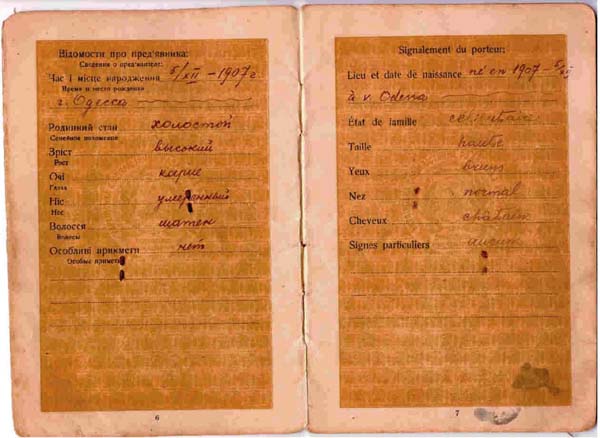 Відомости про пред'явника:
Сведения о пред'явителе:
Час і місце народження 5/XII - 1907 г
Время и место рождения
г. Одесса
Родинний стан холостой
Семейное положение
Зріст высокий
Рост
Очі карие
Глаза
Ніс умеренный
Нос
Волосся шатен
Волосы
Особливі прикмети нет
Особые приметы
6
Signalement du porteur:
Lieu et date de naissance né en 1907 - 5/XII
à v. Odessa
État de famille célibataire
Taille haute
Yeux bruns
Nez normal
Cheveux châtain
Signes particuliers aucun
7